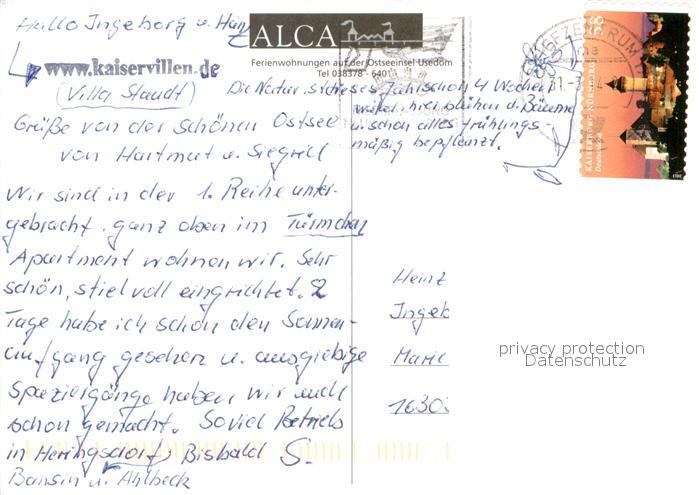 Hallo Ingeborg u. Heinz
ALCA
Ferienwohnungen auf der Ostseeinsel Usedom
Tel 038378 - 6401
www.kaiservillen.de
(Villa Staudt)
Die Natur ist dieses Jahr schon 4 Wochen
weiter, hier blühen d. Bäume
u. schon alles frühlings-
mäßig bepflanzt.
Grüße von der schönen Ostsee
von Hartmut u. Siegrid
Wir sind in der 1. Reihe unter-
gebracht. ganz oben im Türmchen
Apartment wohnen wir. Sehr
schön, stielvoll eingrichtet. 2
Tage habe ich schon den Sonnen-
aufgang gesehen u. ausgiebige
Spaziergänge haben wir auch
schon gemacht. Soviel Betrieb
in Heringsdorf, Bis bald S.
Bansin u. Ahlbeck
58
KAISERBURG NÜRNBERG
Deutschland
Heinz
Ingeb
Marie
16303
privacy protection
Datenschutz